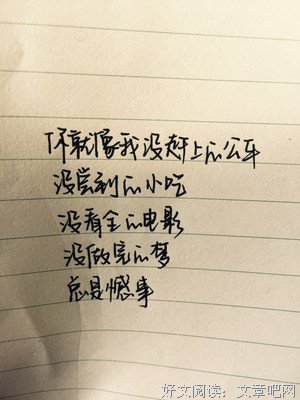 你就像我没赶上的公车
没尝到的小吃
没看全的电影
没做完的梦
总是憾事
好文阅读：文章吧网